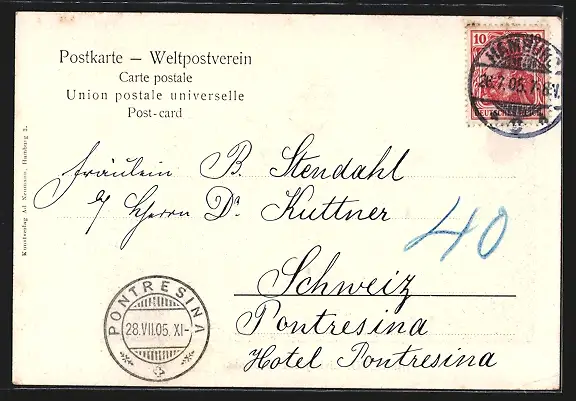 Postkarte – Weltpostverein
Carte postale
Union postale universelle
Post-card
Kunstverlag Ad Neumann, Hamburg 2.
10
DEUTSCHES REICH
HAMBURG
26.7.05.7-8V.
Fräulein B. Stendahl
b/ Herrn Dr. Kuttner
40
Schweiz
Pontresina
Hotel Pontresina
PONTRESINA
28.VII.05. XI-